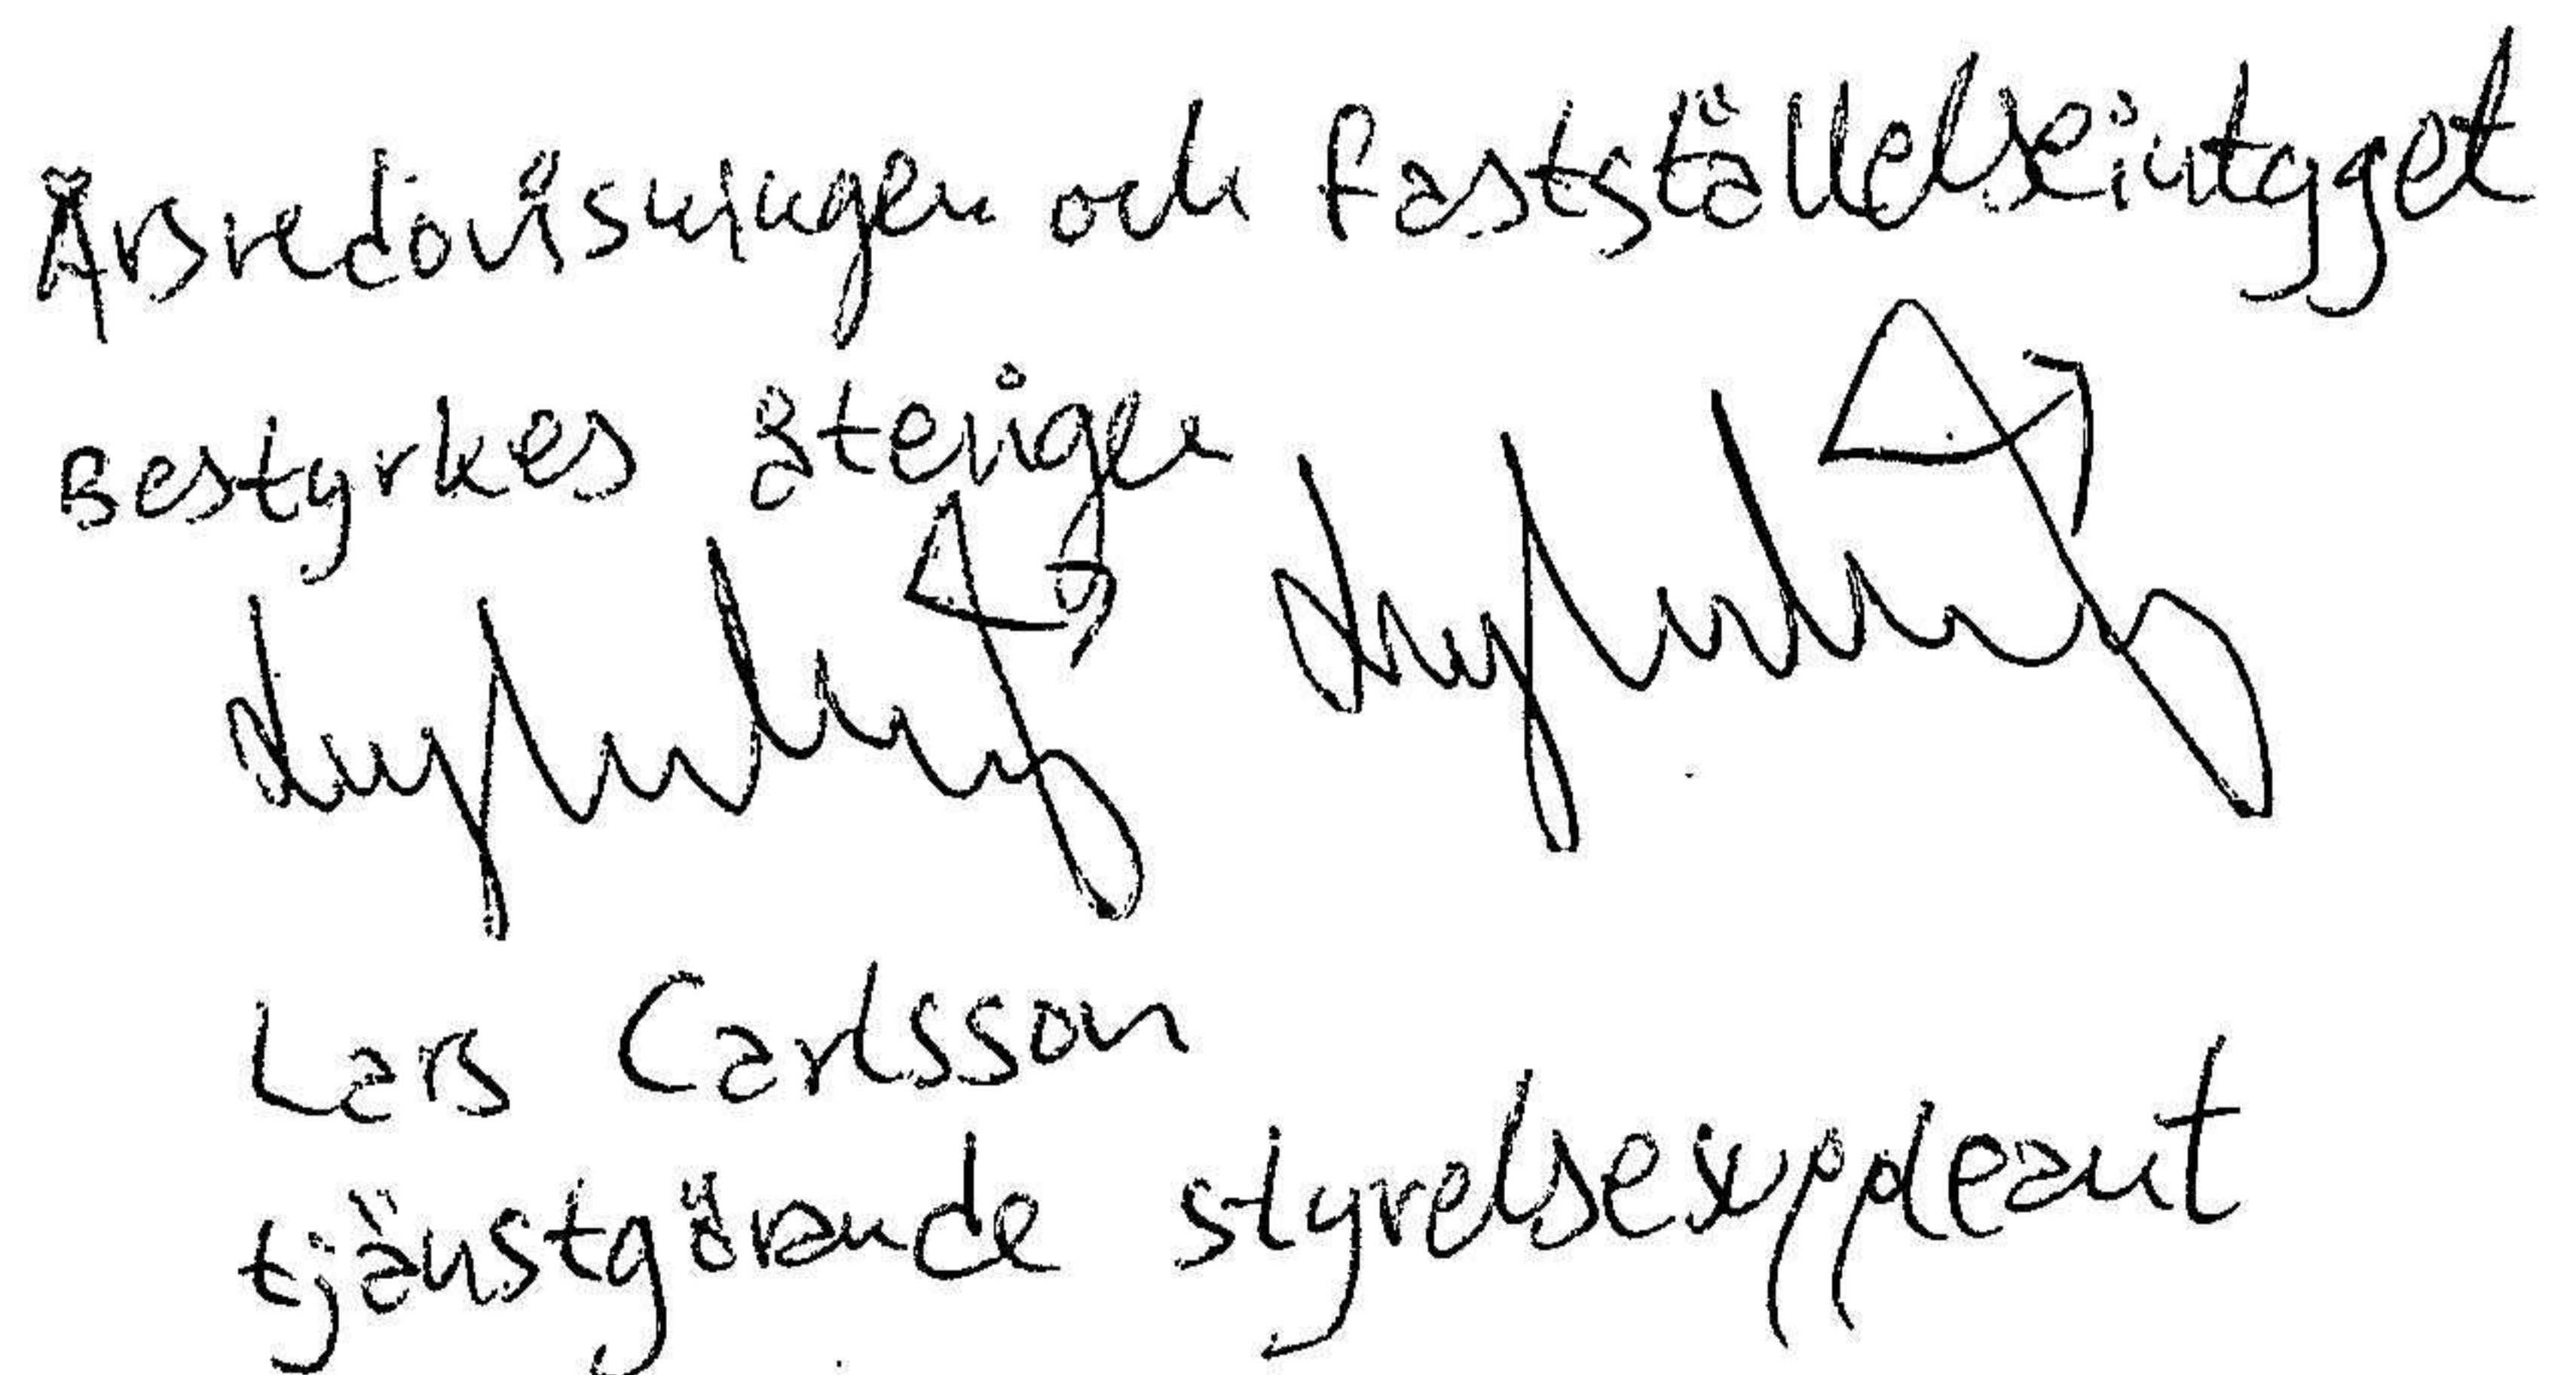 Årsredovisningen och fastställelseintygget
Bestyrkes återigen
Lars Carlsson
tjänstgörande styrelsesuppleant